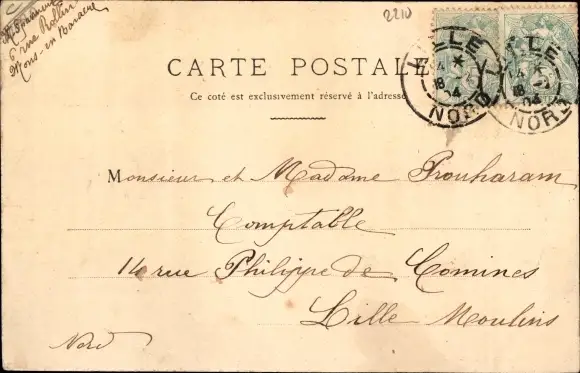 6 rue Rollin
Mons-en-Baroeul
2210
CARTE POSTALE
Ce coté est exclusivement réservé à l'adresse
LILLE
18
04
NORD
LILLE
18
04
NORD
Monsieur et Madame Prouharam
Comptable
14 rue Philippe de Comines
Lille Moulins
Nord